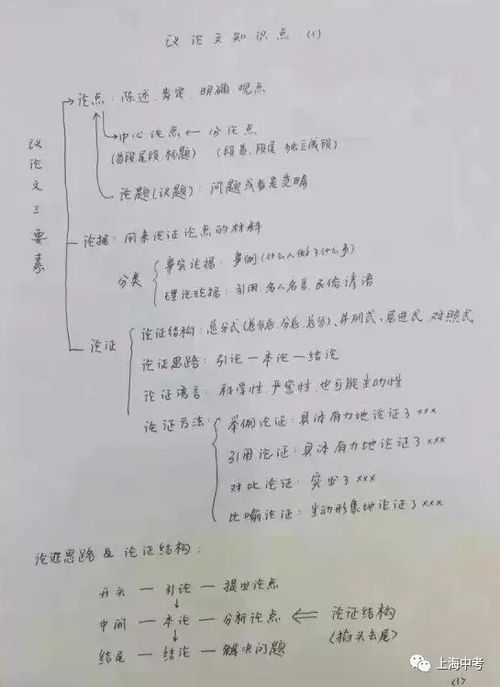 议论文知识点(1)
议论文三要素
论点：陈述、肯定、明确、观点
中心论点 ← 分论点
(首段、尾段、标题) (段首、段尾、独立成段)
论题(议题)：问题或者是范畴
论据：用来论证论点的材料
分类
事实论据：事例(什么人做了什么事)
理论论据：引用、名人名言、民俗谚语
论证
论证结构：总分式(总分总、分总、总分)、并列式、层进式、对照式
论证思路：引论—本论—结论
论证语言：科学性、严密性、也可能生动性
论证方法：
举例论证：具体有力地论证了×××
引用论证：具体有力地论证了×××
对比论证：突出了×××
比喻论证：生动形象地论证了×××
论证思路 & 论证结构：
开头 — 引论 — 提出论点
↓
中间 — 本论 — 分析论点 ⇐ 论证结构
↓ (掐头去尾)
结尾 — 结论 — 解决问题
上海中考
(1)